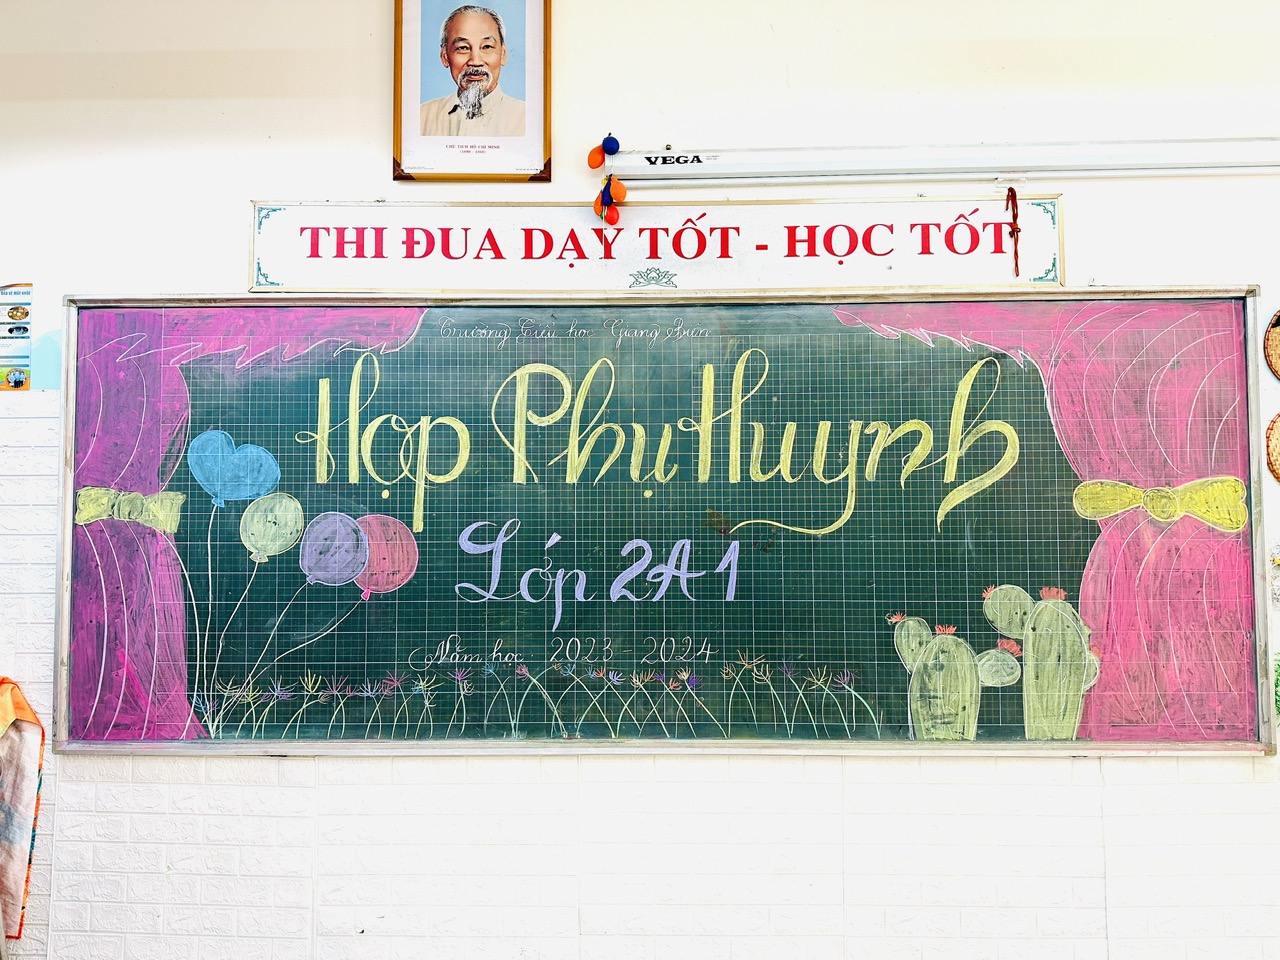 CHỦ TỊCH HỒ CHÍ MINH
(1890 - 1969)
VEGA
THI ĐUA DẠY TỐT - HỌC TỐT
Trường Tiểu học Giang Biên
Họp Phụ Huynh
Lớp 2A1
Năm học: 2023 - 2024